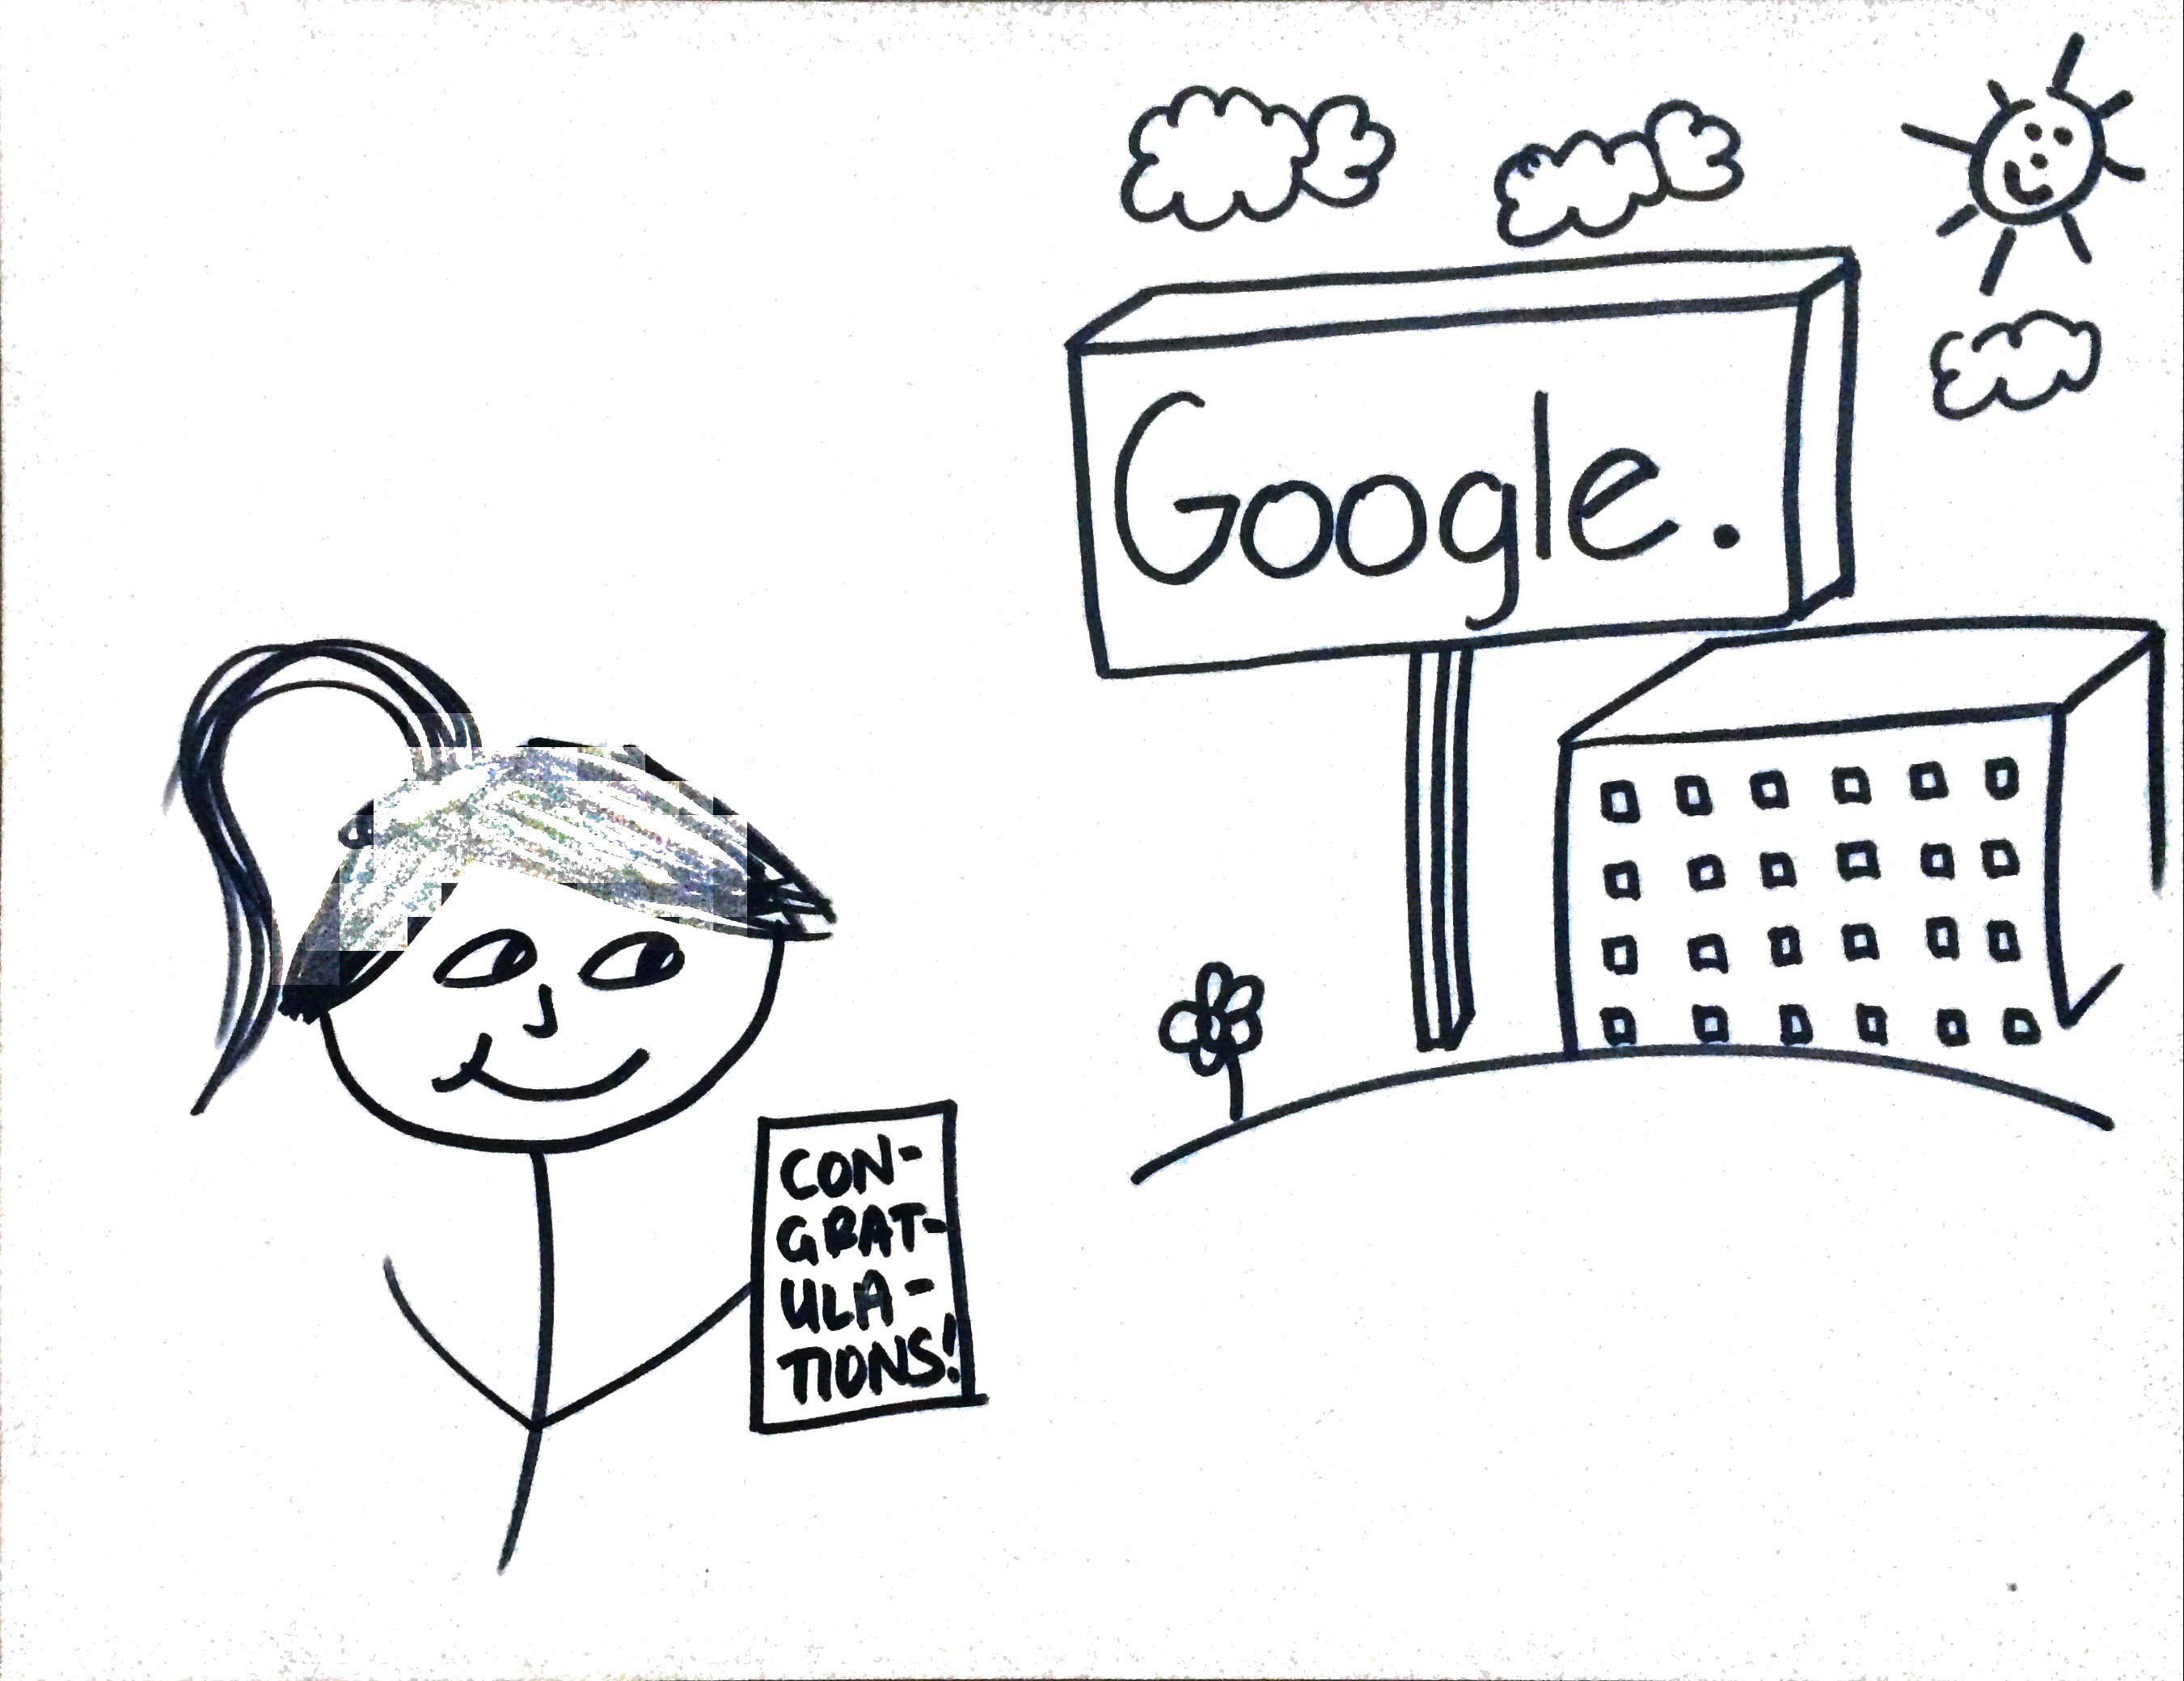 Google.
CON-
GRAT-
ULA-
TIONS!